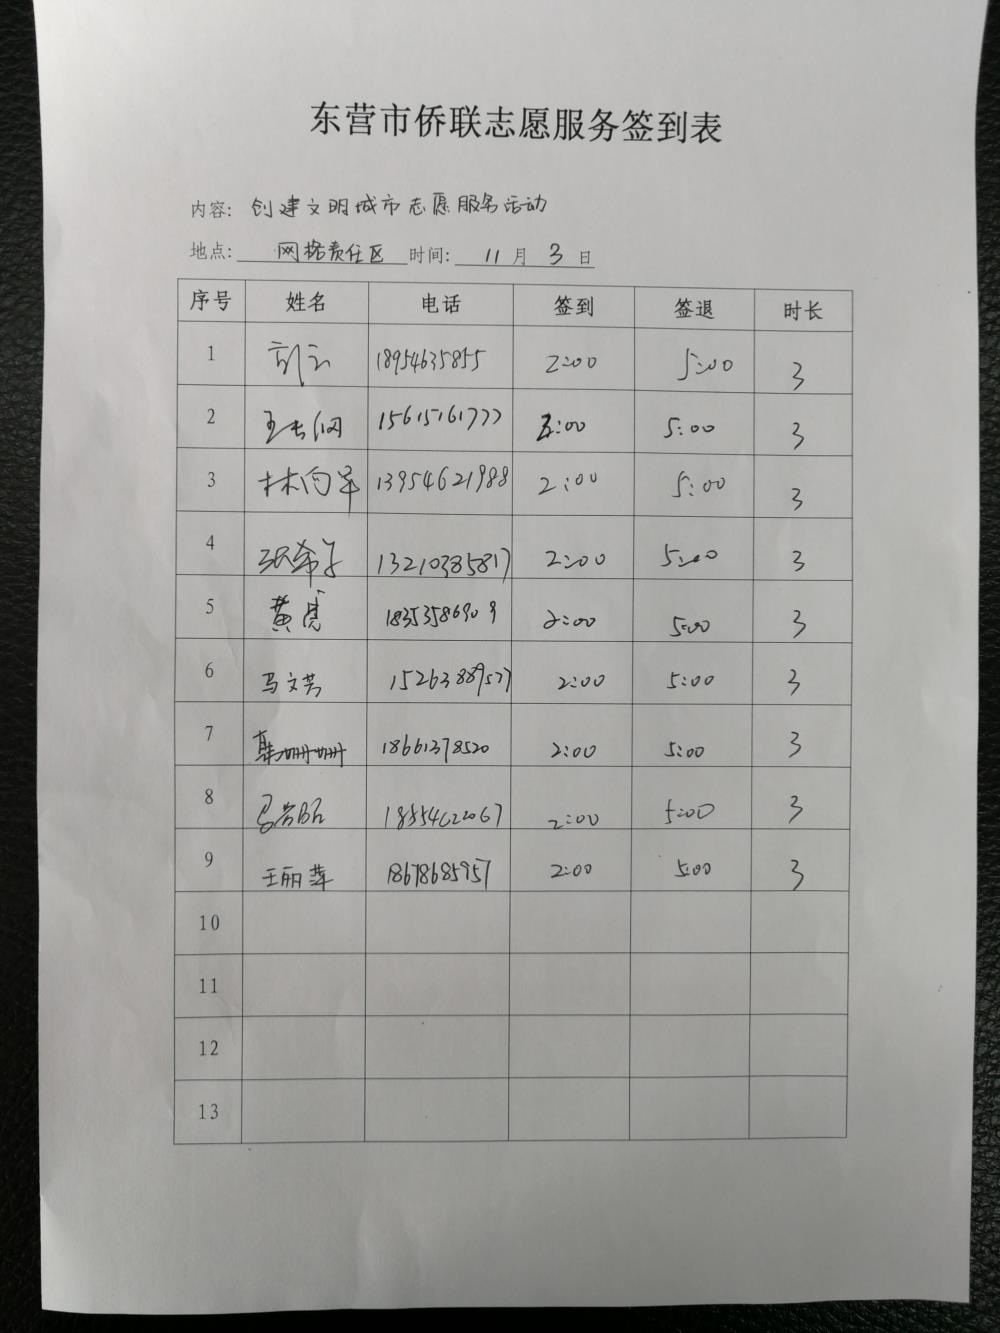 东营市侨联志愿服务签到表
内容: 创建文明城市志愿服务活动
地点: 网格责任区 时间: 11 月 3 日
序号 姓名 电话 签到 签退 时长
1 18954635855 2:00 5:00 3
2 15615161777 2:00 5:00 3
3 林向军 13954621988 2:00 5:00 3
4 13210385817 2:00 5:00 3
5 黄虎 18353586909 2:00 5:00 3
6 马文芳 15263889577 2:00 5:00 3
7 姗姗 18661378520 2:00 5:00 3
8 18554622067 2:00 5:00 3
9 王丽萍 18678685957 2:00 5:00 3
10
11
12
13